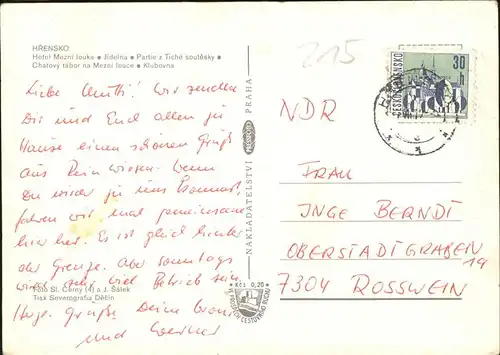 HŘENSKO
Hotel Mezní louka • Jídelna • Partie z Tiché soutěsky •
Chatový tábor na Mezní louce • Klubovna
Liebe Mutti! Wir senden
Dir und Euch allen zu
Hause einen schönen Gruß
aus Rainwiesen. Wenn
Du wieder zu uns kommst
fahren wir mal gemeinsam
hier her. Es ist gleich hinter
der Grenze. Aber sonntags
wird sehr viel Betrieb sein.
Herzl. Grüße Deine
und Werner
Foto St. Černý (4) a J. Šálek
Tisk Severografia Děčín
NAKLADATELSTVÍ PRESSFOTO PRAHA
Kčs 0,20
215
ČESKOSLOVENSKO
30 h
NDR
FRAU
INGE BERNDT
OBERSTADTGRABEN
14
7304 ROSSWEIN